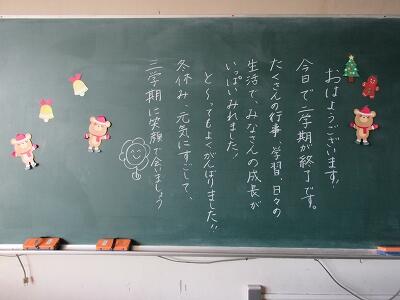 おはようございます!
今日で二学期が終了です。
たくさんの行事、学習、日々の
生活で、みなさんの成長が
いっぱいみれました!
と〜ってもよくがんばりました!!
冬休み、元気にすごして、
三学期に笑顔で会いましょう